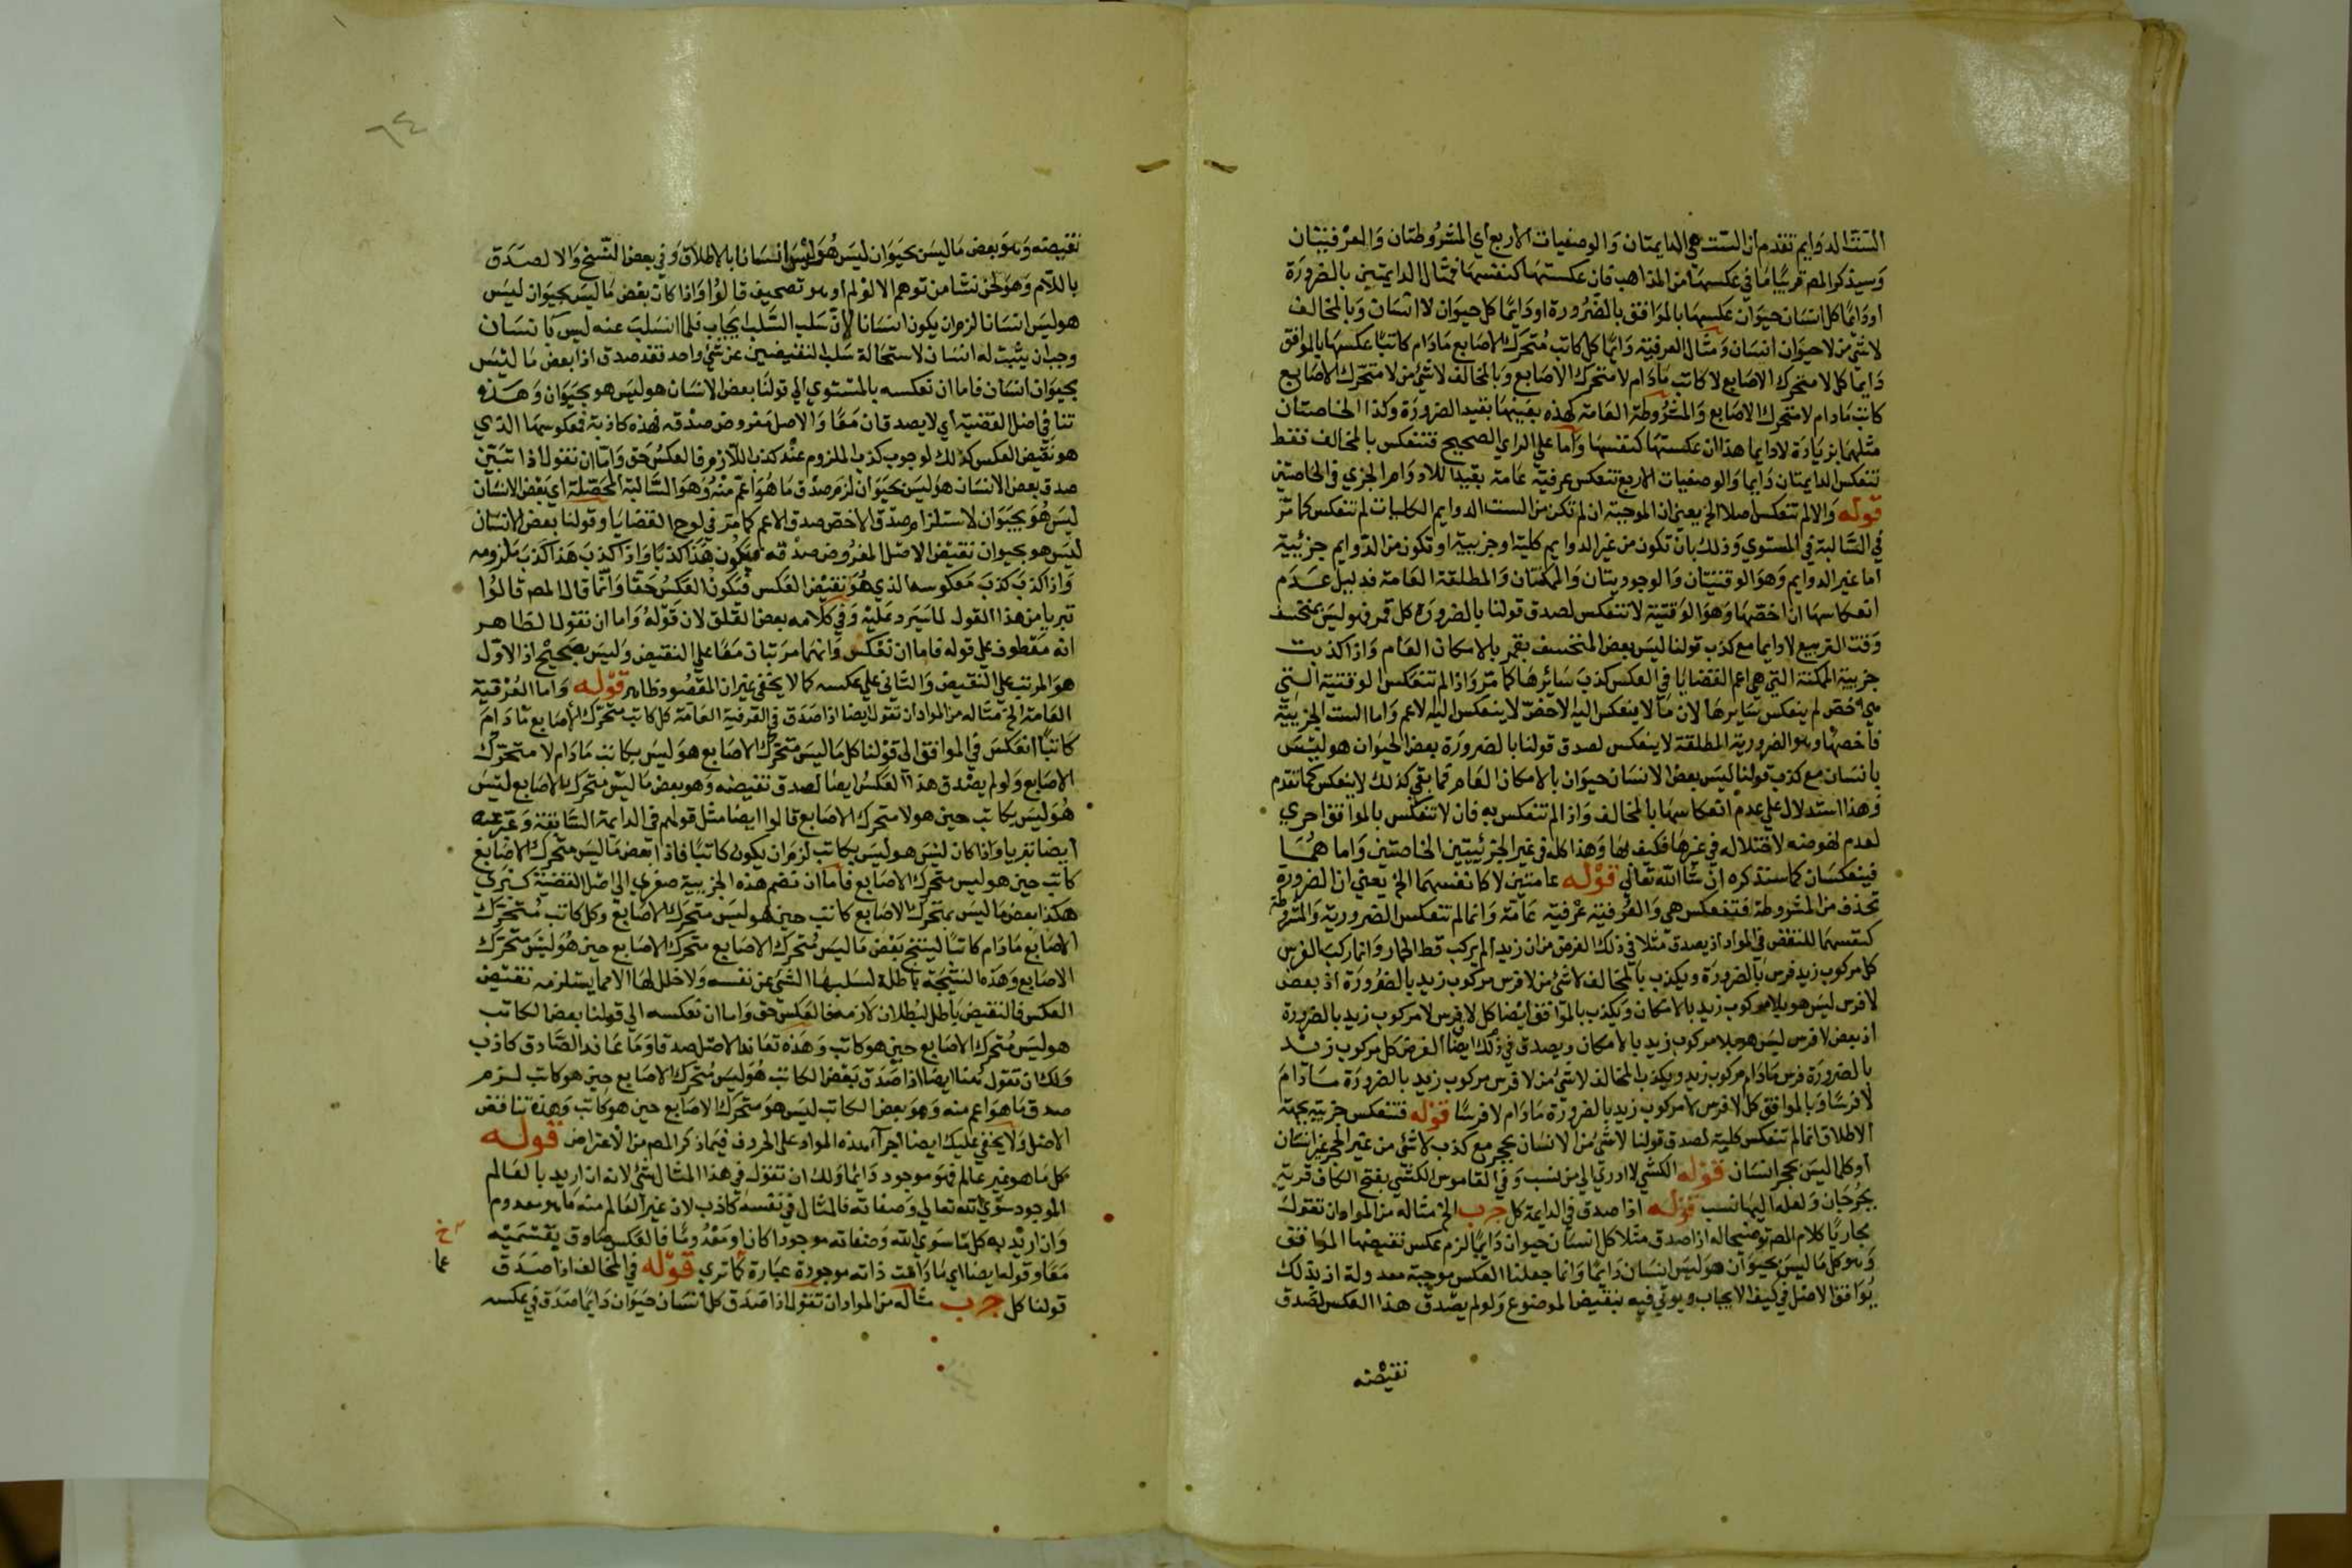 الست الدوايم تقدم ان الست هي الدايمتان والوصفيات الاربع اي المشروطتان والعرفيتان
وسيذكر المص قريبا ما في عكسهما من المذاهب فان عكستها كنفسها فمثال الدايمتين بالضرورة
او دايما كل انسان حيوان عكسها بالموافق بالضرورة او دايما كل لا حيوان لا انسان وبالمخالف
لا شئ من لا حيوان انسان ومثال العرفية دايما كل كاتب متحرك الاصابع مادام كاتبا عكسها بالموافق
دايما كل لا متحرك الاصابع لا كاتب مادام لا متحرك الاصابع وبالمخالف لا شئ من لا متحرك الاصابع
كاتب مادام لا متحرك الاصابع والمشروطة العامة كهذه بعينها بقيد الضرورة وكذا الخاصتان
مثلهما بزيادة لا دايما هذا ان عكستها كنفسها واما على الراي الصحيح فتنعكس بالمخالف فقط
تنعكس الدايمتان دايما والوصفيات الاربع تنعكس عرفية عامة بقيد اللادوام الجزي في الخاصتين
قوله والا لم تنعكس اصلا الخ يعني ان الموجبة ان لم تكن من الست الدوايم الكليات لم تنعكس كما مر
في السالبة في المستوي وذلك بان تكون من غير الدوايم كلية او جزيية او تكون من الدوايم جزئية
اما غير الدوايم وهو الوقتيتان والوجوديتان والممكنتان والمطلقة العامة فدليل عدم
انعكاسها ان اخصها وهو الوقتية لا تنعكس لصدق قولنا بالضرورة كل قمر فهو ليس بمنخسف
وقت التربيع لا دايما مع كذب قولنا ليس بعض المنخسف بقمر بالامكان العام واذا كذبت
جزيية الممكنة التي هي اعم القضايا في العكس كذب سائرها كما مر واذا لم تنعكس الوقتية التي
هي اخص لم ينعكس سايرها لان ما لا ينعكس اليه الاخص لا ينعكس اليه الاعم واما الست الجزيية
فاخصها وهو الضرورية المطلقة لا ينعكس لصدق قولنا بالضرورة بعض الحيوان هو ليس
بانسان مع كذب قولنا ليس بعض الانسان حيوان بالامكان العام فما بقي كذلك لا ينعكس كما تقدم
وهذا استدلال على عدم انعكاسها بالمخالف واذا لم تنعكس به فان لا تنعكس بالموافق احري
لعدم نهوضه لاختلاله في غيرها فكيف بها وهذا كله في غير الجزئيتين الخاصتين واما هما
فينعكسان كما ستذكره ان شا الله تعالي قوله عامتين لا كانفسهما الخ يعني ان الضرورة
تحذف من المشروطة فتنعكس هي والعرفية عرفية عامة وانما لم تنعكس الضرورية والمشروطة
كنفسهما للنقض في المواد اذ يصدق مثلا في ذلك الفرض من ان زيدا لم يركب قط الحمار وانما ركب الفرس
كل مركوب زيد فرس بالضرورة ويكذب بالمخالف لا شئ من لا فرس مركوب زيد بالضرورة اذ بعض
لا فرس ليس هو بلا مركوب زيد بالامكان ويكذب بالموافق ايضا كل لا فرس لا مركوب زيد بالضرورة
اذ بعض لا فرس ليس هو بلا مركوب زيد بالامكان ويصدق في ذلك ايضا الفرض كل مركوب زيد
بالضرورة فرس مادام مركوب زيد ويكذب المخالف لا شئ من لا فرس مركوب زيد بالضرورة مادام
لا فرسا وبالموافق كل لا فرس لا مركوب زيد بالضرورة مادام لا فرسا قوله فتنعكس جزيية بجهة
الاطلاق انما لم تنعكس كلية لصدق قولنا لا شئ من الانسان بحجر مع كذب لا شئ من غير الحجر غير انسان
او كلما ليس بحجر انسان قوله الكشي لا ادري الي من نسب وفي القاموس الكشي بفتح الكاف قرية
بجرجان ولعله اليها نسب قوله اذا صدق في الدايمة كل ج ب الخ مثاله من المواد ان تقول
مجاريا كلام المص توضيحا له اذا صدق مثلا كل انسان حيوان دايما لزم عكس نقيضها الموافق
وهو كل ما ليس بحيوان هو ليس انسان دايما وانما جعلنا العكس موجبة معدولة اذ بذلك
يوافق الاصل في كيف الايجاب ويوتي فيه بنقيض الموضوع ولو لم يصدق هذا العكس لصدق
نقيضه
٦٤
نقيضه وهو بعض ما ليس بحيوان ليس هو ليس انسانا بالاطلاق وفي بعض النسخ والا لصدق
باللام وهو لحن نشا من توهم الا لو لم او هو تصحيف قالوا واذا كان بعض ما ليس بحيوان ليس
هو ليس انسانا لزم ان يكون انسانا لان سلب السلب ايجاب فلما انسلب عنه ليس بانسان
وجب ان يثبت له انسان لاستحالة سلب النقيضين عن شئ واحد فقد صدق اذا بعض ما ليس
بحيوان انسان فاما ان تعكسه بالمستوي الي قولنا بعض الانسان هو ليس هو بحيوان وهذه
تنافي اصل القضية اي لا يصدقان معا والاصل مفروض صدقه فهذه كاذبة فمعكوسها الذي
هو نقيض العكس كذلك لوجوب كذب الملزوم عند كذب اللازم فالعكس حق واما ان نقول اذا تبين
صدق بعض الانسان هو ليس بحيوان لزم صدق ما هو اعم منه وهو السالبة المحصلة اي بعض الانسان
ليس هو بحيوان لاستلزام صدق الاخص صدق الاعم كما مر في لوح القضايا وقولنا بعض الانسان
ليس هو بحيوان نقيض الاصل المفروض صدقه فيكون هذا كذبا واذا كذب هذا كذب ملزومه
واذا كذب كذب معكوسه الذي هو نقيض العكس فتكون العكس حقا وانما قال المص قالوا
تبريا من هذا القول لما سيرد عليه وفي كلامه بعض القلق لان قوله واما ان نقول الظاهر
انه معطوف على قوله فاما ان تعكس وانهما مرتبان معا على النقيض وليس بصحيح اذ الاول
هو المرتب على النقيض والثاني على عكسه كما لا يخفي غير ان المقصود ظاهر قوله واما العرفية
العامة الخ مثاله من المواد ان تقول ايضا اذا صدق في العرفية العامة كل كاتب متحرك الاصابع مادام
كاتبا انعكس في الموافق الي قولنا كل ما ليس متحرك الاصابع هو ليس بكاتب مادام لا متحرك
الاصابع ولو لم يصدق هذا العكس ايضا لصدق نقيضه وهو بعض ما ليس متحرك الاصابع ليس
هو ليس بكاتب حين هو لا متحرك الاصابع قالوا ايضا مثل قولهم في الدايمة السابقة
ايضا تبريا واذا كان ليس هو ليس بكاتب لزم ان يكون كاتبا فاذا بعض ما ليس متحرك الاصابع
كاتب حين هو ليس متحرك الاصابع فاما ان تضم هذه الجزيية صغري الي اصل القضية كبري
هكذا بعض ما ليس بمتحرك الاصابع كاتب حين هو ليس متحرك الاصابع وكل كاتب متحرك
الاصابع مادام كاتبا لينتج بعض ما ليس متحرك الاصابع متحرك الاصابع حين هو ليس متحرك
الاصابع وهذه النتيجة باطلة لسلبها الشئ عن نفسه ولا خلل لها الا مما يستلزمه نقيض
العكس فالنقيض باطل لبطلان لازمه فالعكس حق واما ان تعكسه الي قولنا بعض الكاتب
هو ليس متحرك الاصابع حين هو كاتب وهذه تعاند الاصل صدقا وما عاند الصادق كاذب
ولك ان تقول هنا ايضا اذا صدق بعض الكاتب هو ليس متحرك الاصابع حين هو كاتب لزم
صدق ما هو اعم منه وهو بعض الكاتب ليس هو متحرك الاصابع حين هو كاتب وهذه تناقض
الاصل ولا يخفي عليك ايضا اجرآء هذه المواد على الحروف فيما ذكر المص من الاعتراض قوله
كل ما هو غير عالم فهو موجود دايما ولك ان تقول في هذا المثال شئ لانه ان اريد بالعالم
الموجود سوي الله تعالي وصفاته فالمثال في نفسه كاذب لان غير العالم منه ما هو معدوم
وان اريد به كل ما سوي الله وصفاته موجودا كان او معدوما فالعكس صادق بقسميه
معا وقوله ايضا اي مادامت ذاته موجودة عبارة كما تري قوله في المخالف اذا صدق
قولنا كل ج ب مثاله من المواد ان تقول اذا صدق كل انسان حيوان دايما صدق في عكسه